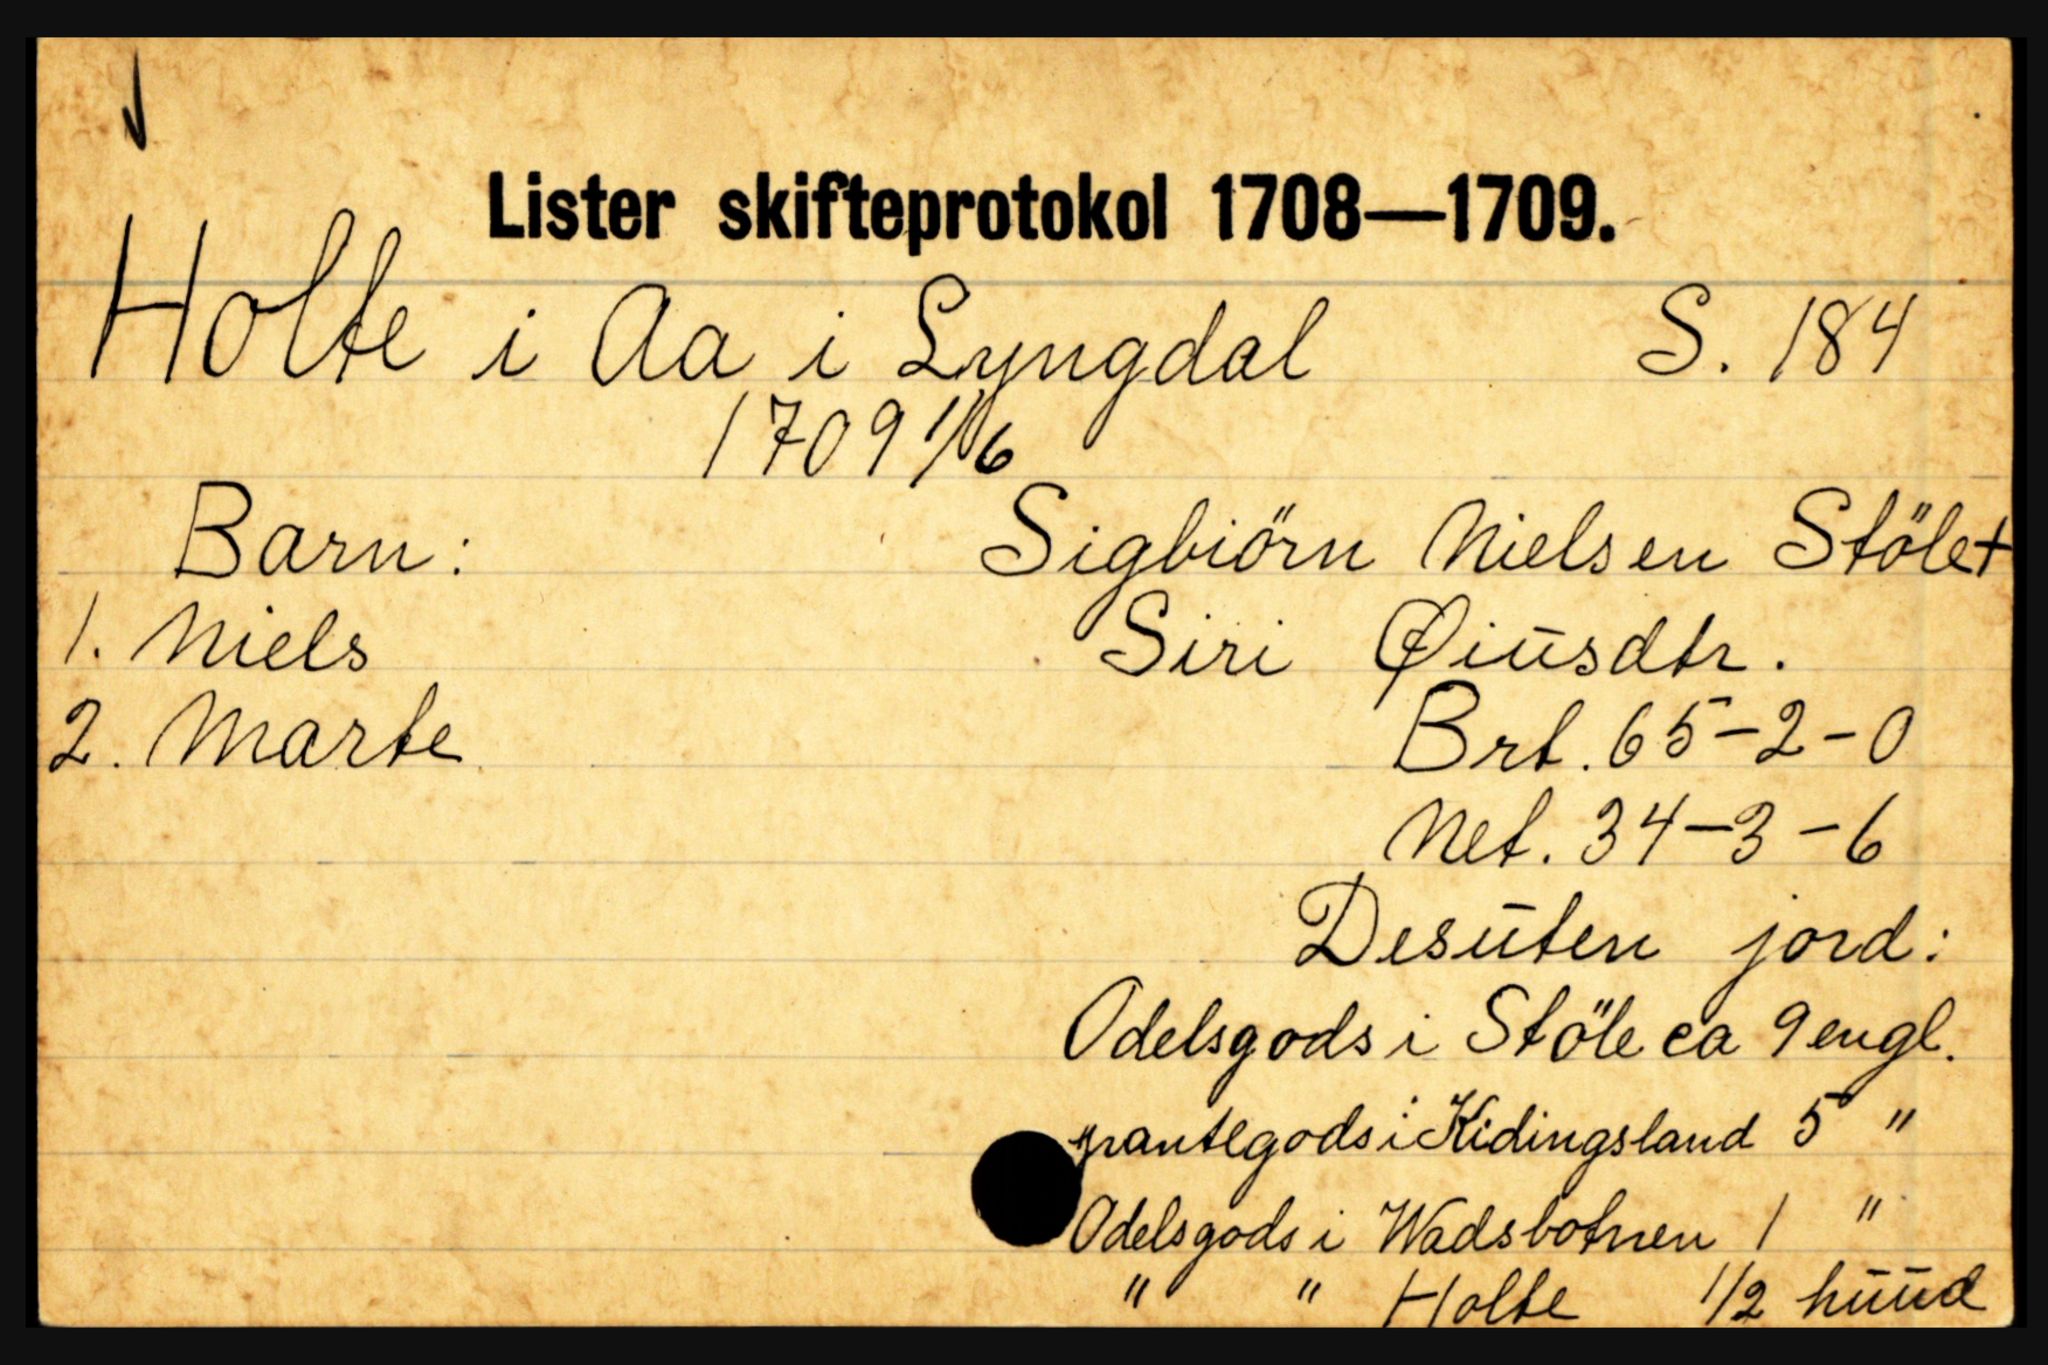 Lister skifteprotokol 1708—1709.
Holte i Aa i Lyngdal S. 184
1709 1/6
Barn: Sigbiörn Nielsen Stölet
1. Niels Siri Øiusdtr.
2. Marte Brt. 65-2-0
Net. 34-3-6
Desuten jord:
Odelsgods i Stöle ca 9 engl.
pantegods i Kidingsland 5 "
Odelsgods i Wadsbotnen 1 "
" " Holte 1/2 huud